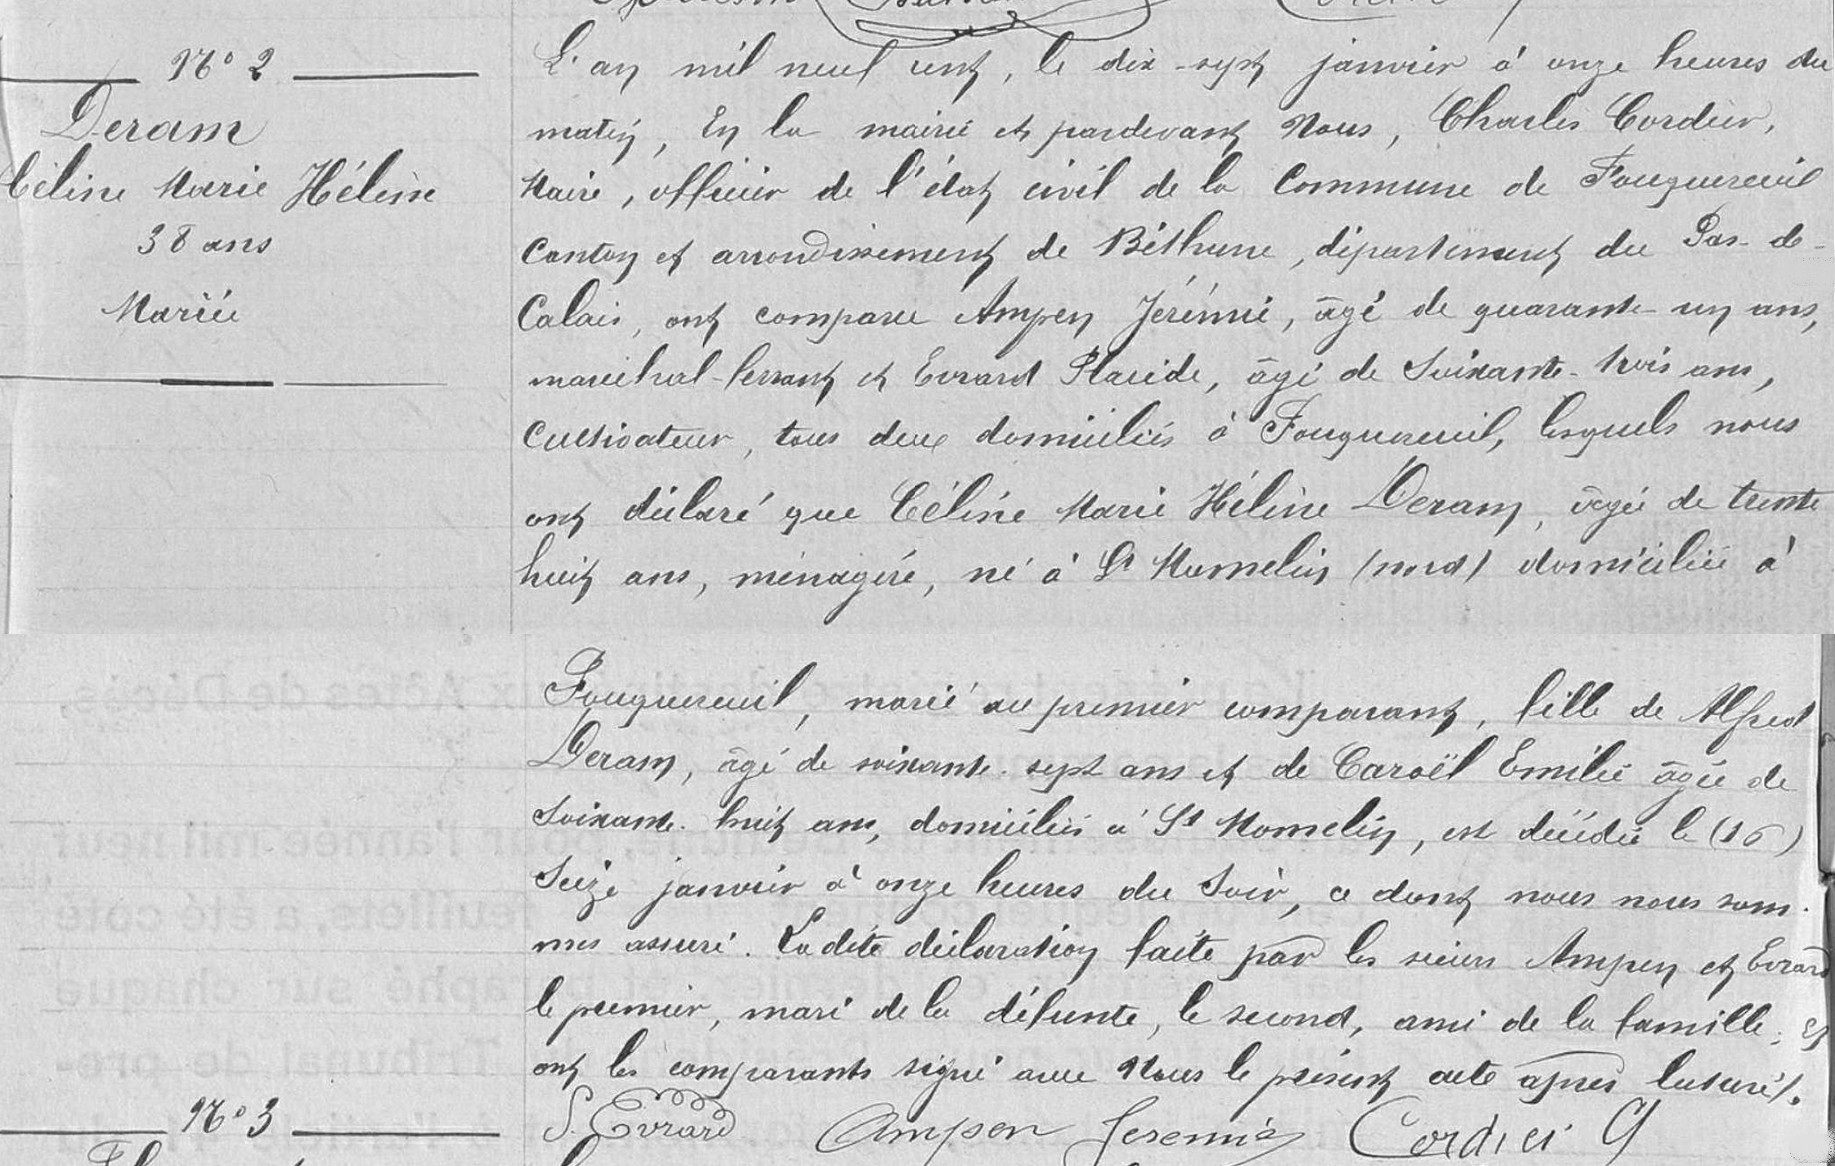 N° 2
Deram
Céline Marie Hélène
38 ans
Mariée
L'an mil neuf cent, le dix-sept janvier à onze heures du
matin, En la mairie et pardevant Nous, Charles Cordier,
Maire, officier de l'état civil de la Commune de Fouquereuil
Canton et arrondissement de Béthune, département du Pas-de-
Calais, ont comparu Ampen Jérémie, âgé de quarante-un ans,
maréchal-ferrant et Evrard Placide, âgé de Soixante-trois ans,
Cultivateur, tous deux domiciliés à Fouquereuil, lesquels nous
ont déclaré que Céline Marie Hélène Deram, âgée de trente
huit ans, ménagère, né à St Momelin (nord) domiciliée à
Fouquereuil, marié au premier comparant, fille de Alfred
Deram, âgé de soixante-sept ans et de Caroël Emilie âgée de
Soixante-huit ans, domiciliés à St Momelin, est décédée le (16)
Seize janvier à onze heures du Soir, ce dont nous nous som-
mes assuré. La dite déclaration faite par les sieurs Ampen et Evrard
le premier, mari de la défunte, le second, ami de la famille; Et
ont les comparants signé avec Nous le présent acte après lecture/.
N° 3
P. Evrard Ampen Jeremie Cordier C